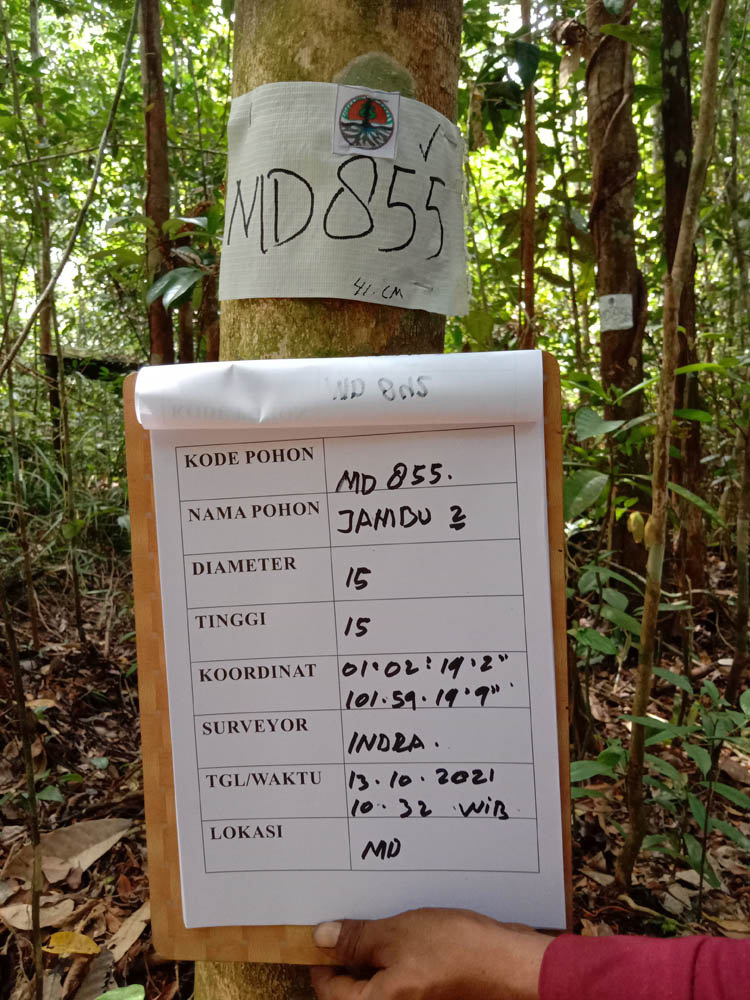 MD 855
41. CM
MD 845
KODE POHON MD 855.
NAMA POHON JAMBU 2
DIAMETER 15
TINGGI 15
KOORDINAT 01°02'19.2"
101.59.19.9"
SURVEYOR INDRA.
TGL/WAKTU 13.10.2021
10.32 WIB
LOKASI MD